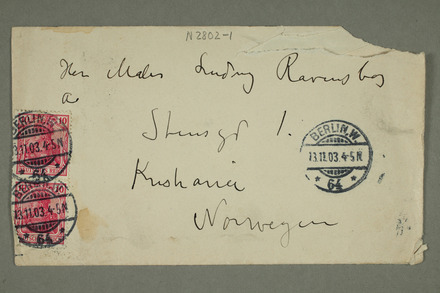 N2802-1
Herr Maler Ludvig Ravensberg
Stensgd 1.
Kristiania
Norwegen
BERLIN.W.
13.11.03.4-5N
64
10
BERLIN.W.
13.11.03.4-5N
64
10
BERLIN.W.
13.11.03.4-5N
64